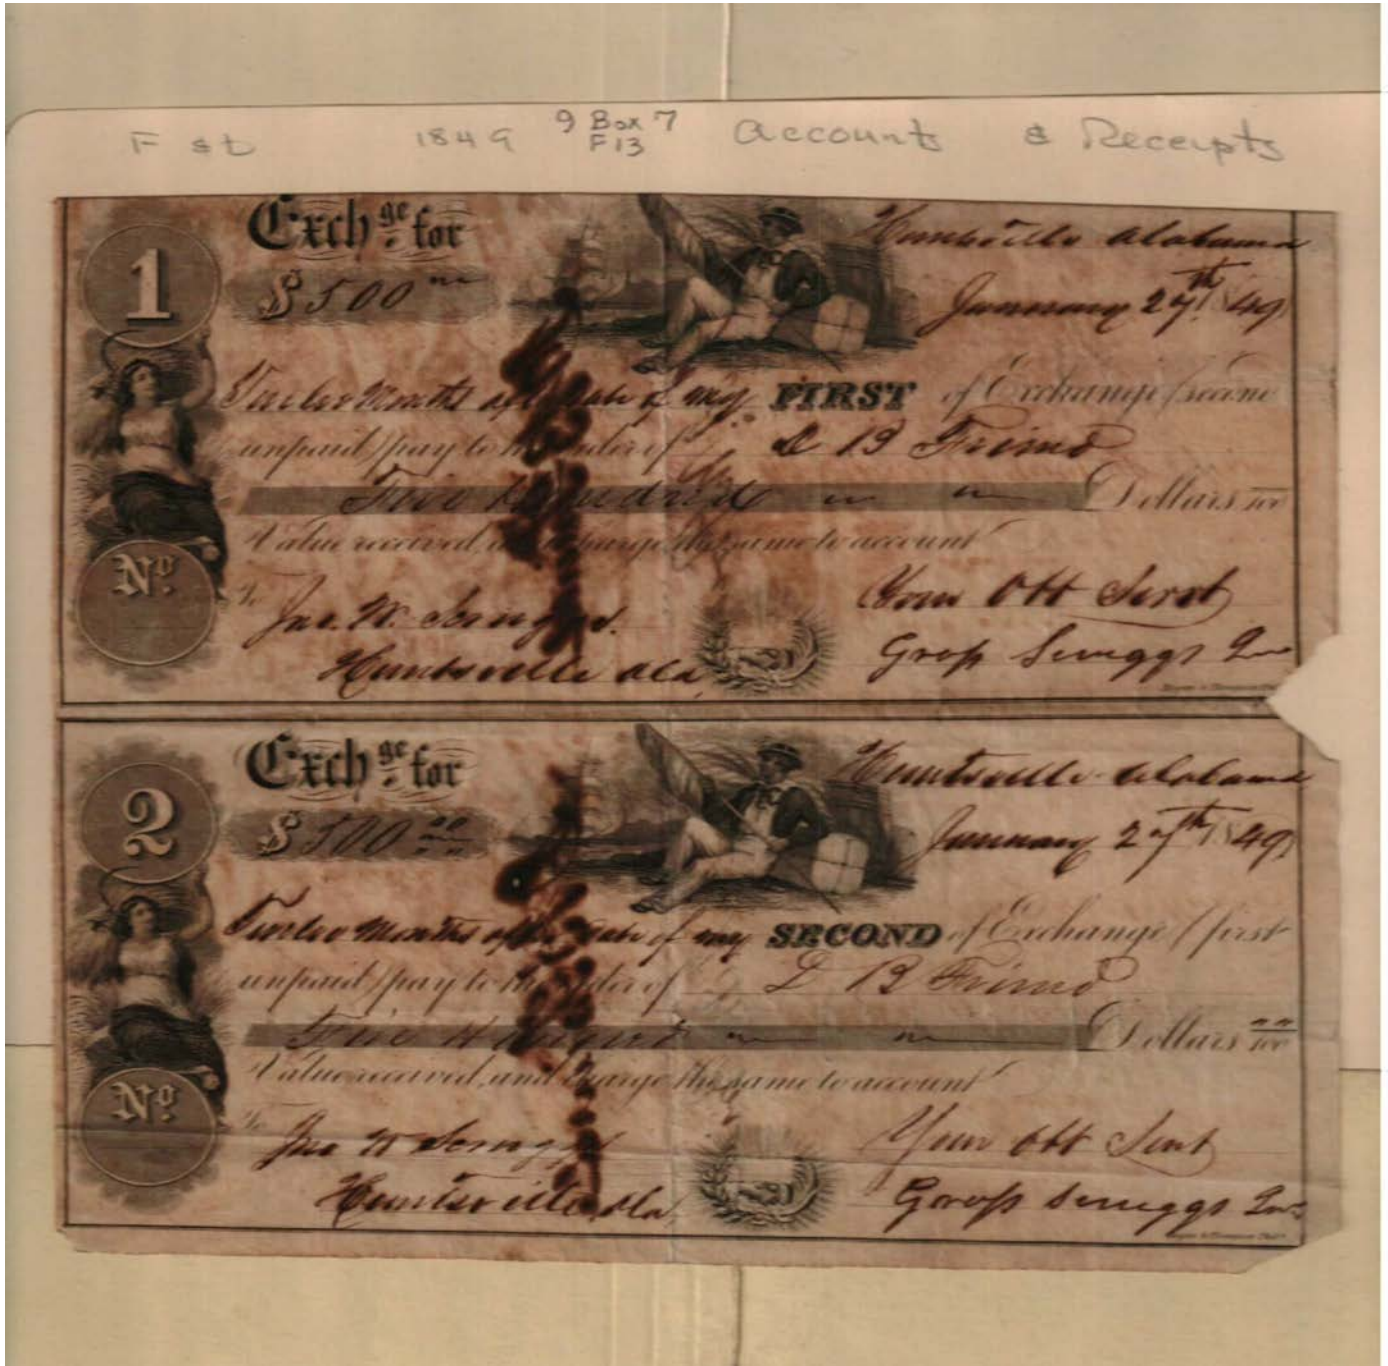 F & L 1849 9 Box 7 Accounts & Receipts
F13
1
Exchge. for
Huntsville Alabama
$500
January 27th 49
Twelve Months after date of my FIRST of Exchange (second
unpaid) pay to the order of L B Friend
Five Hundred Dollars 100
Value received, and charge the same to account
No.
To
Jno. W. Scruggs.
Your Obt Servt
Huntsville Ala
Gross Scruggs
2
Exchge. for
Huntsville Alabama
$500 00
January 27th 49
Twelve Months after date of my SECOND of Exchange (first
unpaid) pay to the order of L B Friend
Five Hundred Dollars 100
Value received, and charge the same to account
No.
To
Jno W Scruggs
Your Obt Servt
Huntsville Ala
Gross Scruggs